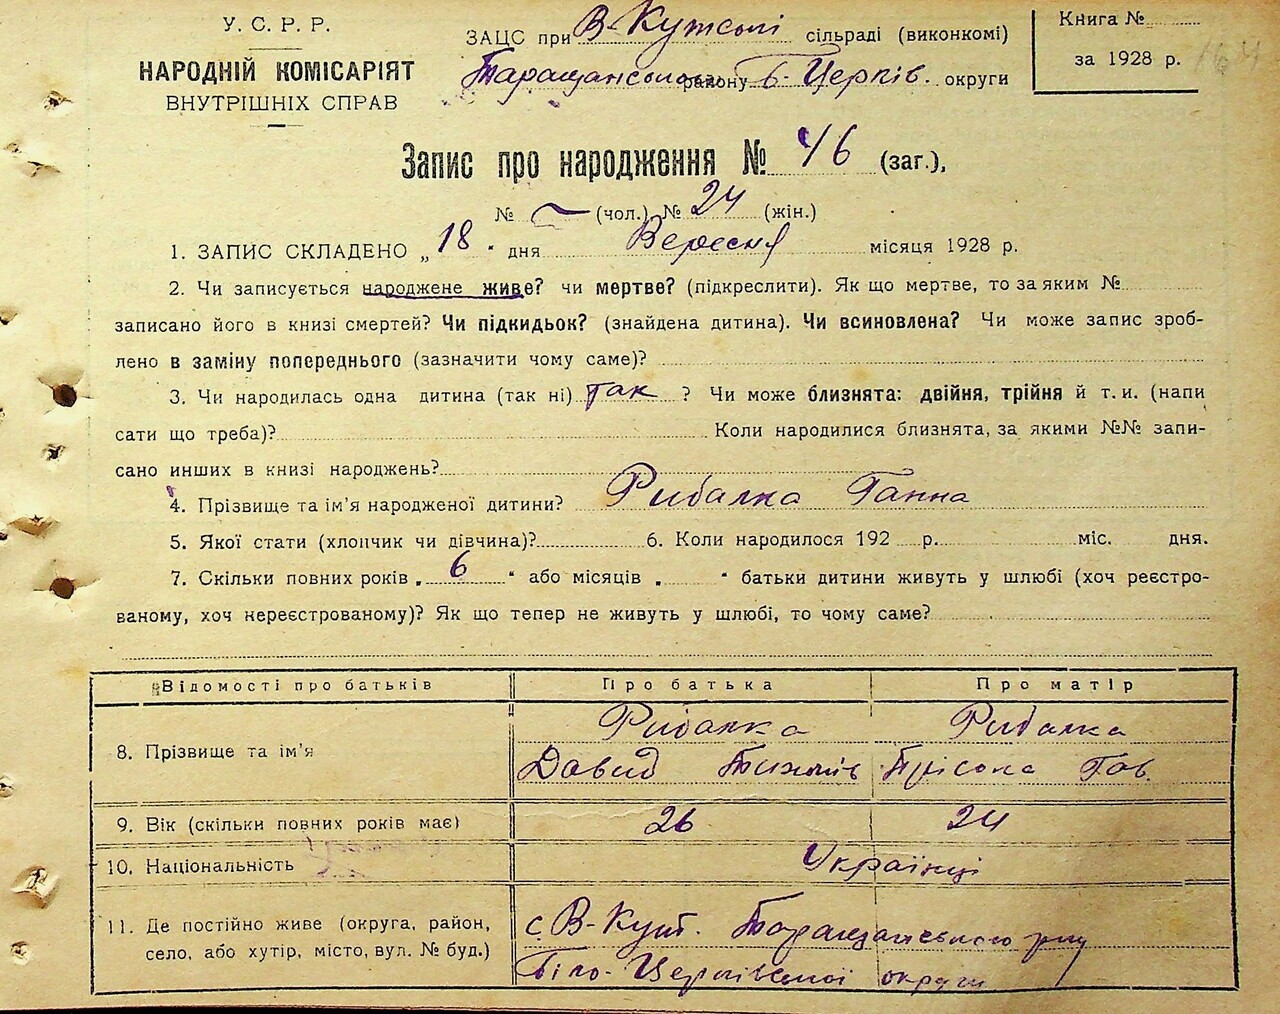 У. С. Р. Р.
НАРОДНІЙ КОМІСАРІЯТ
ВНУТРІШНІХ СПРАВ
ЗАЦС при В-Кутській сільраді (виконкомі)
Таращанського району Б-Церків. округи
Книга №
за 1928 р. 164
Запис про народження № 46 (заг.),
№ (чол.) № 24 (жін.)
1. ЗАПИС СКЛАДЕНО „18" дня Вересня місяця 1928 р.
2. Чи записується народжене живе? чи мертве? (підкреслити). Як що мертве, то за яким №
записано його в книзі смертей? Чи підкидьок? (знайдена дитина). Чи всиновлена? Чи може запис зроб-
лено в заміну попереднього (зазначити чому саме)?
3. Чи народилась одна дитина (так ні) так ? Чи може близнята: двійня, трійня й т. и. (напи
сати що треба)? Коли народилися близнята, за якими №№ запи-
сано инших в книзі народжень?
4. Прізвище та ім'я народженої дитини? Рибалка Ганна
5. Якої стати (хлопчик чи дівчина)? 6. Коли народилося 192 р. міс. дня.
7. Скільки повних років „ 6 " або місяців „ " батьки дитини живуть у шлюбі (хоч реєстро-
ваному, хоч нереєстрованому)? Як що тепер не живуть у шлюбі, то чому саме?
Відомості про батьків Про батька Про матір
8. Прізвище та ім'я Рибалка Рибалка
Давид Тихонів Пріська Гав.
9. Вік (скільки повних років має) 26 24
10. Національність Українці
11. Де постійно живе (округа, район,
село, або хутір, місто, вул. № буд.)
с. В-Кут. Таращанського р-ну
Біло-Церківської округи